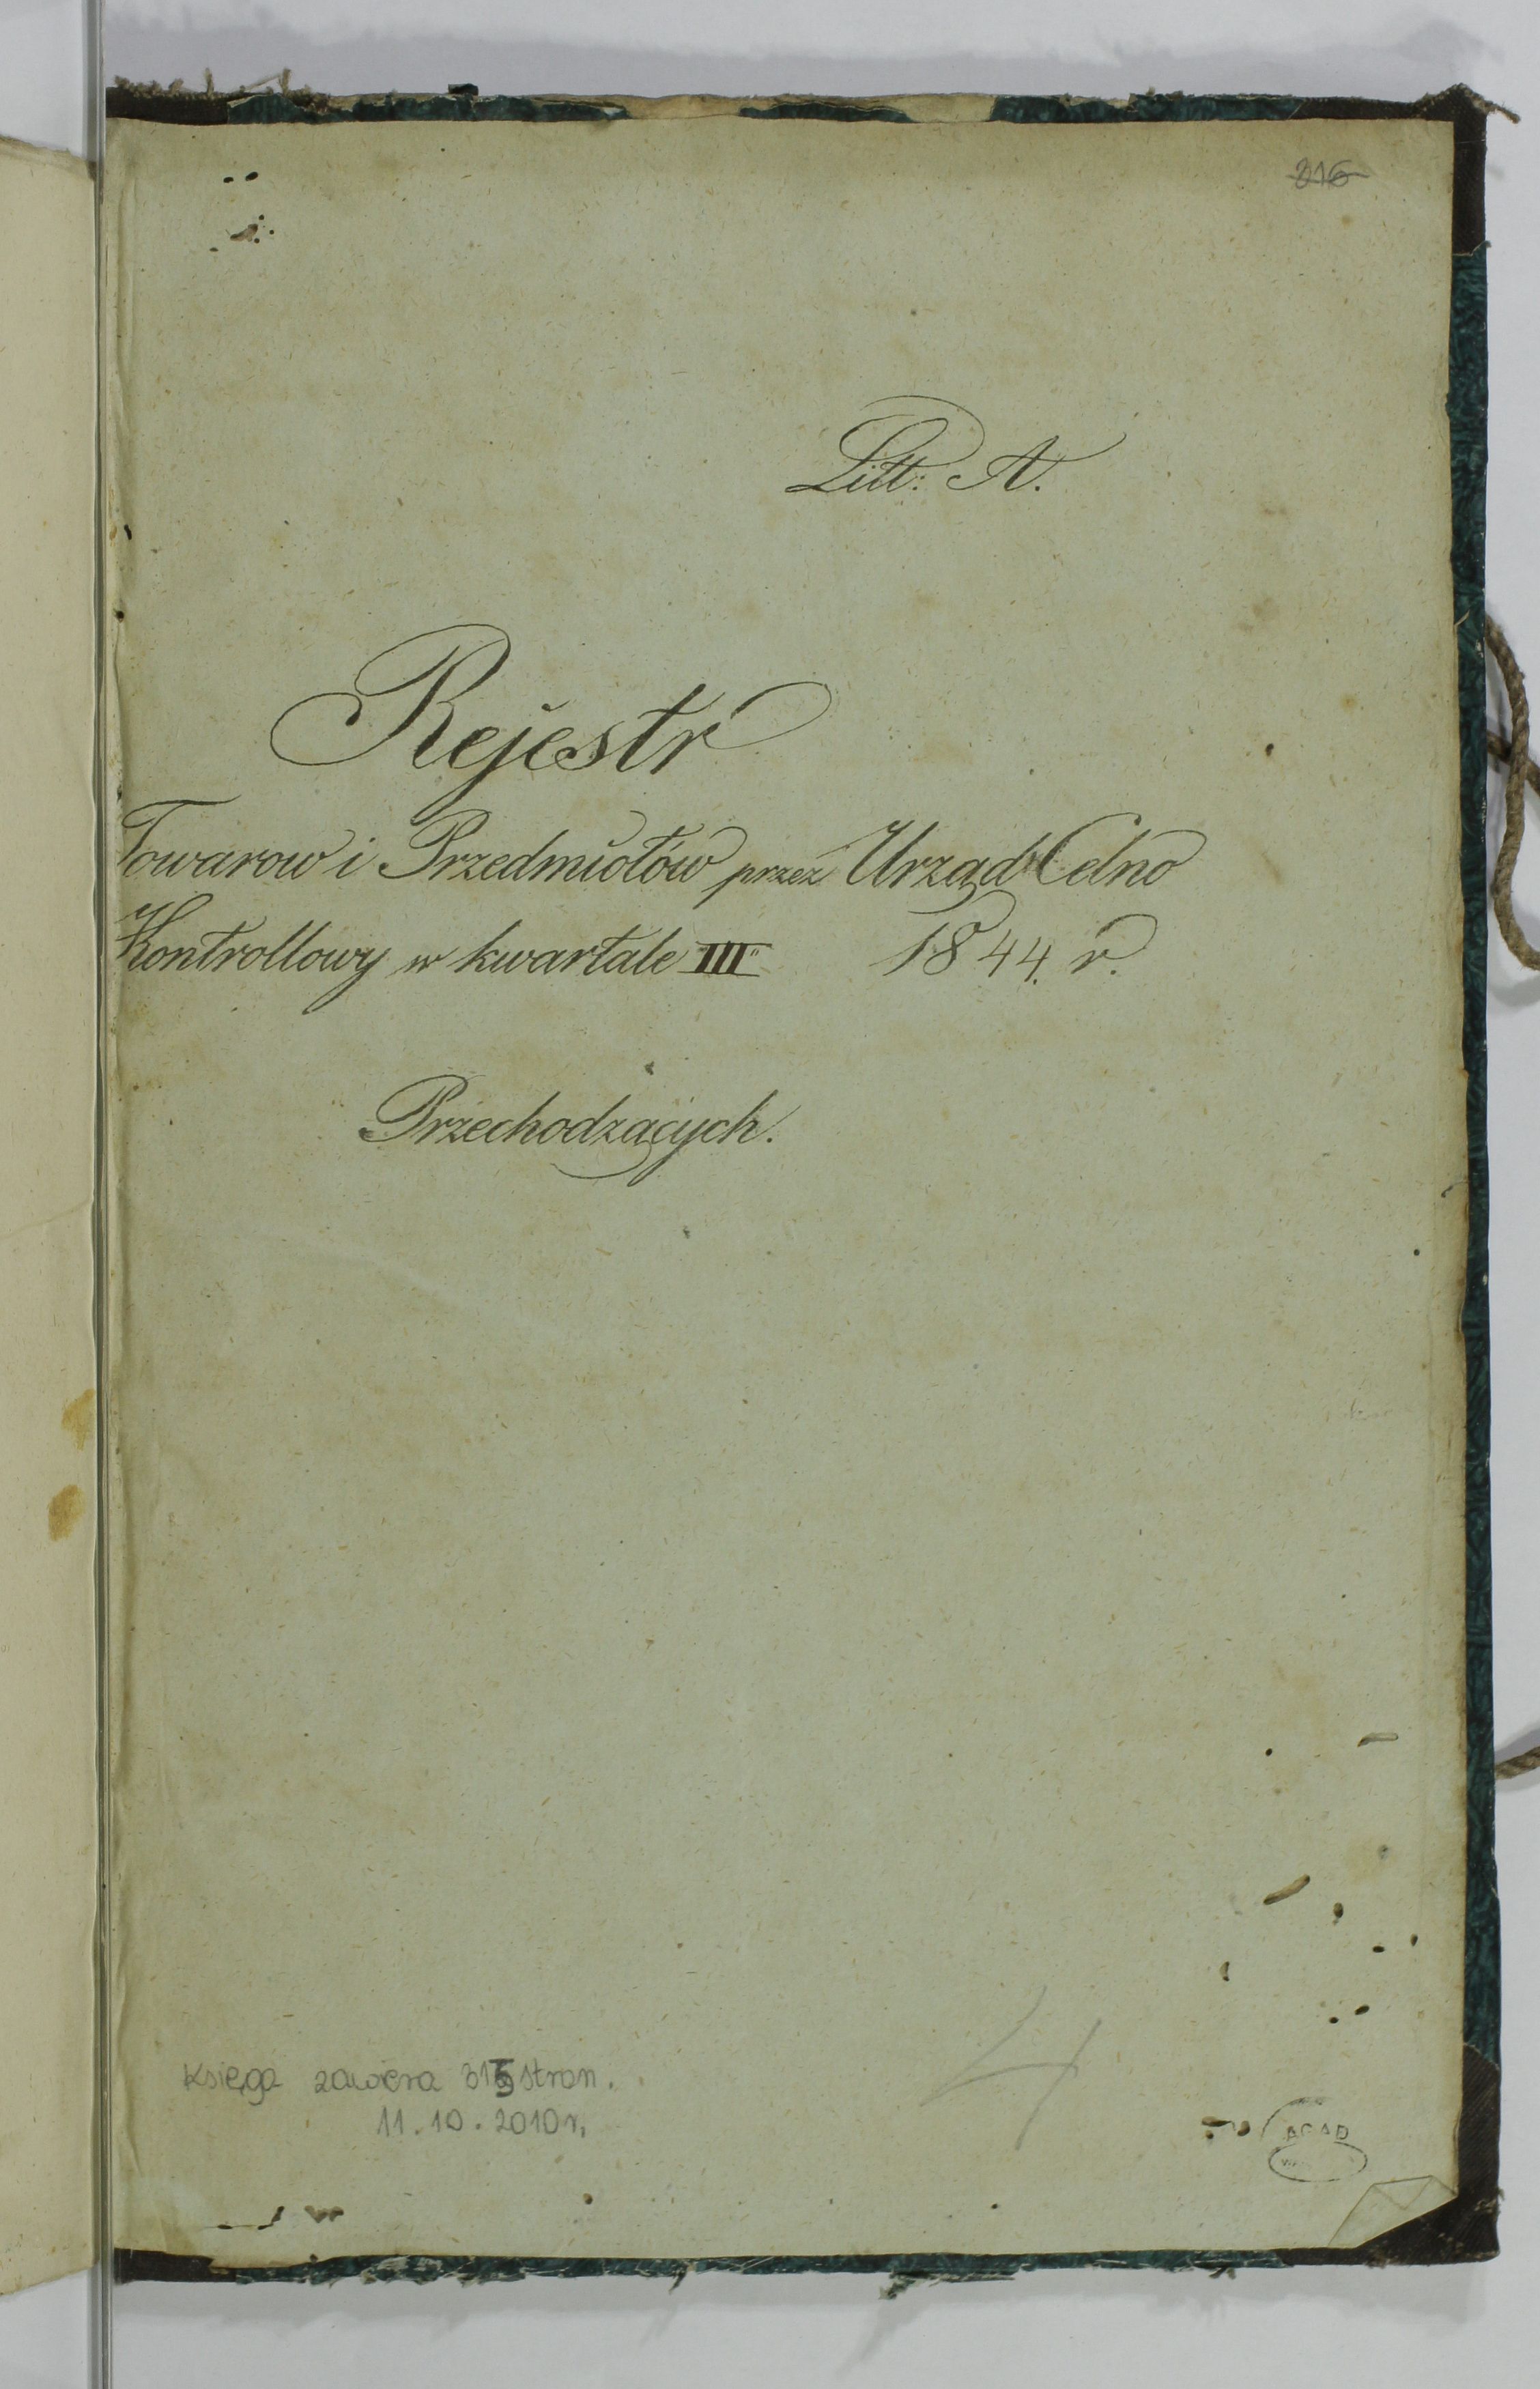 316
Litt: A.
Rejestr
Towarow i Przedmiotów przez Urząd Celno
Kontrollowy w kwartale III 1844. r.
Przechodzących.
4
Księga zawiera 315 stron.
11.10.2010r.
AGAD